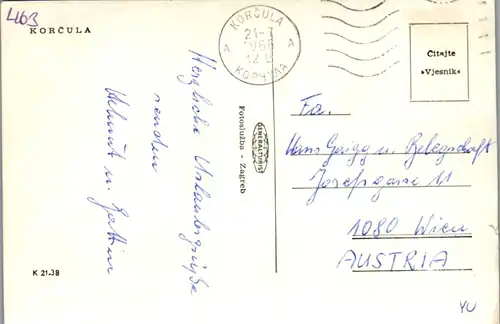 463
KORČULA
KORČULA
21-7
1966
12
A A
КОРЧУЛА
Čitajte
»Vjesnik«
Herzliche Urlaubsgrüße
senden
Helmut u. Gattin
GENERALTURIST
Fotoslužba - Zagreb
Fa.
Hans Geigg u. Belegschaft
Josefsgasse 11
1080 Wien
AUSTRIA
K 21-38
YU